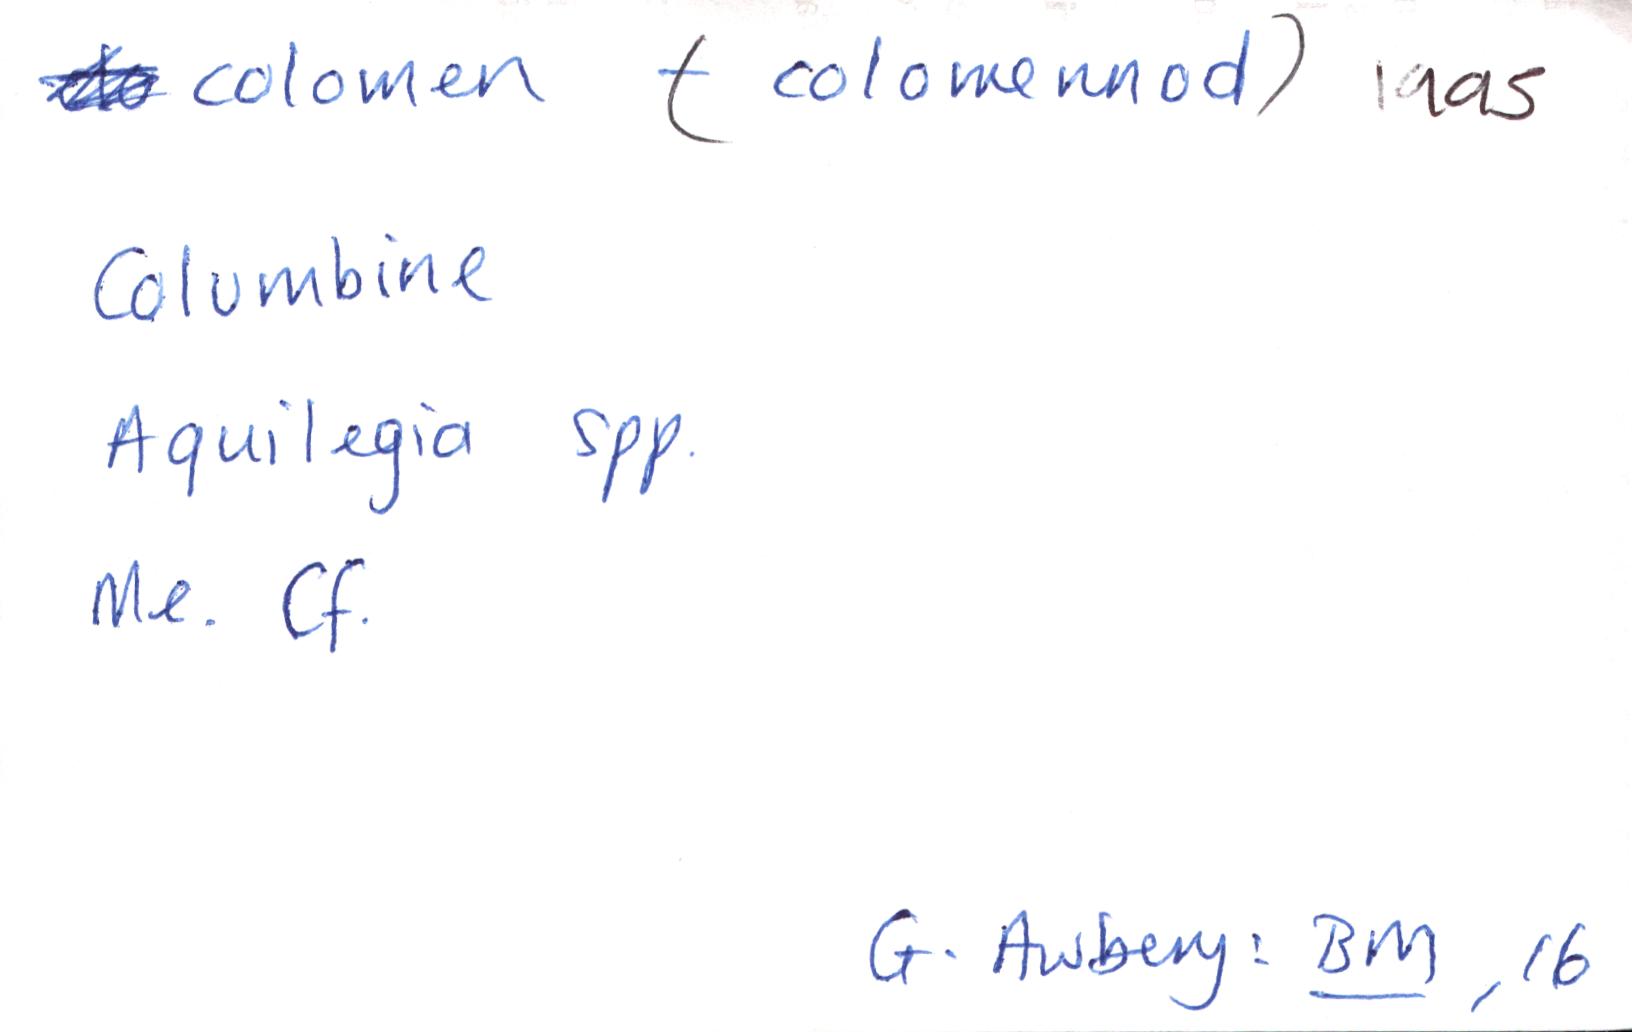 colomen (colomennod) 1995
Columbine
Aquilegia spp.
Me. Cf.
G. Awbery: BM, 16